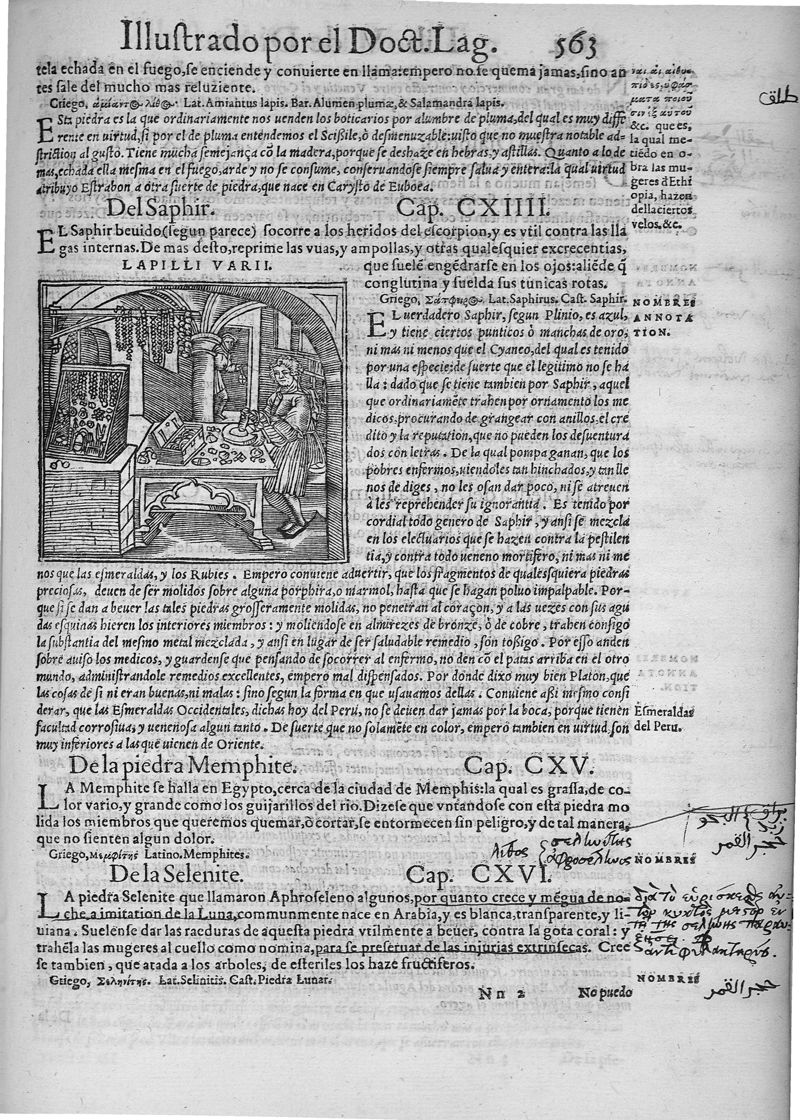 Illustrado por el Doct. Lag. 563
tela echada en el fuego, se enciende y conuierte en llama: empero no se quema jamas, sino an
tes sale del mucho mas reluziente.
Griego, Lat. Amiantus lapis. Bar. Alumen plumæ, & Salamandra lapis.
ESta piedra es la que ordinariamente nos uenden los boticarios por alumbre de pluma, del qual es muy diffe
rente en uirtud, si por el de pluma entendemos el Scißile, ò desmenuzable: uisto que no muestra notable ad-
striction al gusto. Tiene mucha semejança cõ la madera, porque se deshaze en hebras, y astillas. Quanto a lo de
mas, echada ella mesma en el fuego, arde y no se consume, conseruandose siempre salua y entera: la qual uirtud
atribuyo Estrabon a otra suerte de piedra, que nace en Carysto de Euboea.
&c. que es,
la qual me-
tiẽdo en o-
bra las mu-
geres d'Ethi
opia, hazen
della ciertos
velos. &c.
طلق
Del Saphir. Cap. CXIIII.
EL Saphir beuido (segun parece) socorre a los heridos del escorpion, y es vtil contra las lla
gas internas. De mas desto, reprime las vuas, y ampollas, y otras qualesquier excrecentias,
LAPILLI VARII.
que suelẽ engẽdrarse en los ojos: aliẽde q̃
conglutina y suelda sus tunicas rotas.
Griego, Lat. Saphirus. Cast. Saphir.
NOMBRES
EL uerdadero Saphir, segun Plinio, es azul,
y tiene ciertos punticos ò manchas de oro,
ANNOTA
TION.
ni mas ni menos que el Cyaneo, del qual es tenido
por una especie: de suerte que el legitimo no se ha
lla: dado que se tiene tambien por Saphir, aquel
que ordinariamẽte trahen por ornamento los me
dicos, procurando de grangear con anillos, el cre
dito y la reputation, que no pueden los desuentura
dos con letras. De la qual pompa ganan, que los
pobres enfermos, uiendoles tan hinchados, y tan lle
nos de diges, no les osan dar poco, ni se atreuen
à les reprehender su ignorantia. Es tenido por
cordial todo genero de Saphir, y ansi se mezcla
en los electuarios que se hazen contra la pestilen
tia, y contra todo ueneno mortifero, ni mas ni me
nos que las esmeraldas, y los Rubies. Empero conuiene aduertir, que los fragmentos de qualesquiera piedras
preciosas, deuen de ser molidos sobre alguna porphira, o marmol, hasta que se hagan poluo impalpable. Por-
que si se dan a beuer las tales piedras grosseramente molidas, no penetran al coraçon, y a las uezes con sus agu
das esquinas hieren los interiores miembros: y moliendose en almirezes de bronze, ò de cobre, trahen consigo
la substantia del mesmo metal mezclada, y ansi en lugar de ser saludable remedio, son toßigo. Por esso anden
sobre auiso los medicos, y guardense que pensando de socorrer al enfermo, no den cõ el patas arriba en el otro
mundo, administrandole remedios excellentes, empero mal dispensados. Por donde dixo muy bien Platon, que
las cosas de si ni eran buenas, ni malas: sino segun la forma en que usauamos dellas. Conuiene aßi mismo consi
derar, que las Esmeraldas Occidentales, dichas hoy del Peru, no se deuen dar jamas por la boca, porque tienen
facultad corrosiua, y uenenosa algun tanto. De suerte que no solamẽte en color, emperò tambien en uirtud, son
muy inferiores a las que uienen de Oriente.
Esmeraldas
del Peru.
De la piedra Memphite. Cap. CXV.
LA Memphite se halla en Egypto, cerca de la ciudad de Memphis: la qual es grassa, de co-
lor vario, y grande como los guijarillos del rio. Dizese que vntandose con esta piedra mo
lida los miembros que queremos quemar, ò cortar, se entormecen sin peligro, y de tal manera,
que no sienten algun dolor.
Griego, Μεμφίτης. Latino. Memphites.
NOMBRES
حجر القمر
De la Selenite. Cap. CXVI.
LA piedra Selenite que llamaron Aphroseleno algunos, por quanto crece y mẽgua de no-
che a imitation de la Luna, communmente nace en Arabia, y es blanca, transparente, y li-
uiana. Suelense dar las raeduras de aquesta piedra vtilmente a beuer, contra la gota coral: y
trahẽla las mugeres al cuello como nomina, para se preseruar de las injurias extrinsecas. Cree
se tambien, que atada a los arboles, de esteriles los haze fructiferos.
Griego, Σεληνίτης. Lat. Selinitis. Cast. Piedra Lunar.
NOMBRES
حجر القمر
Nn 2 No puedo